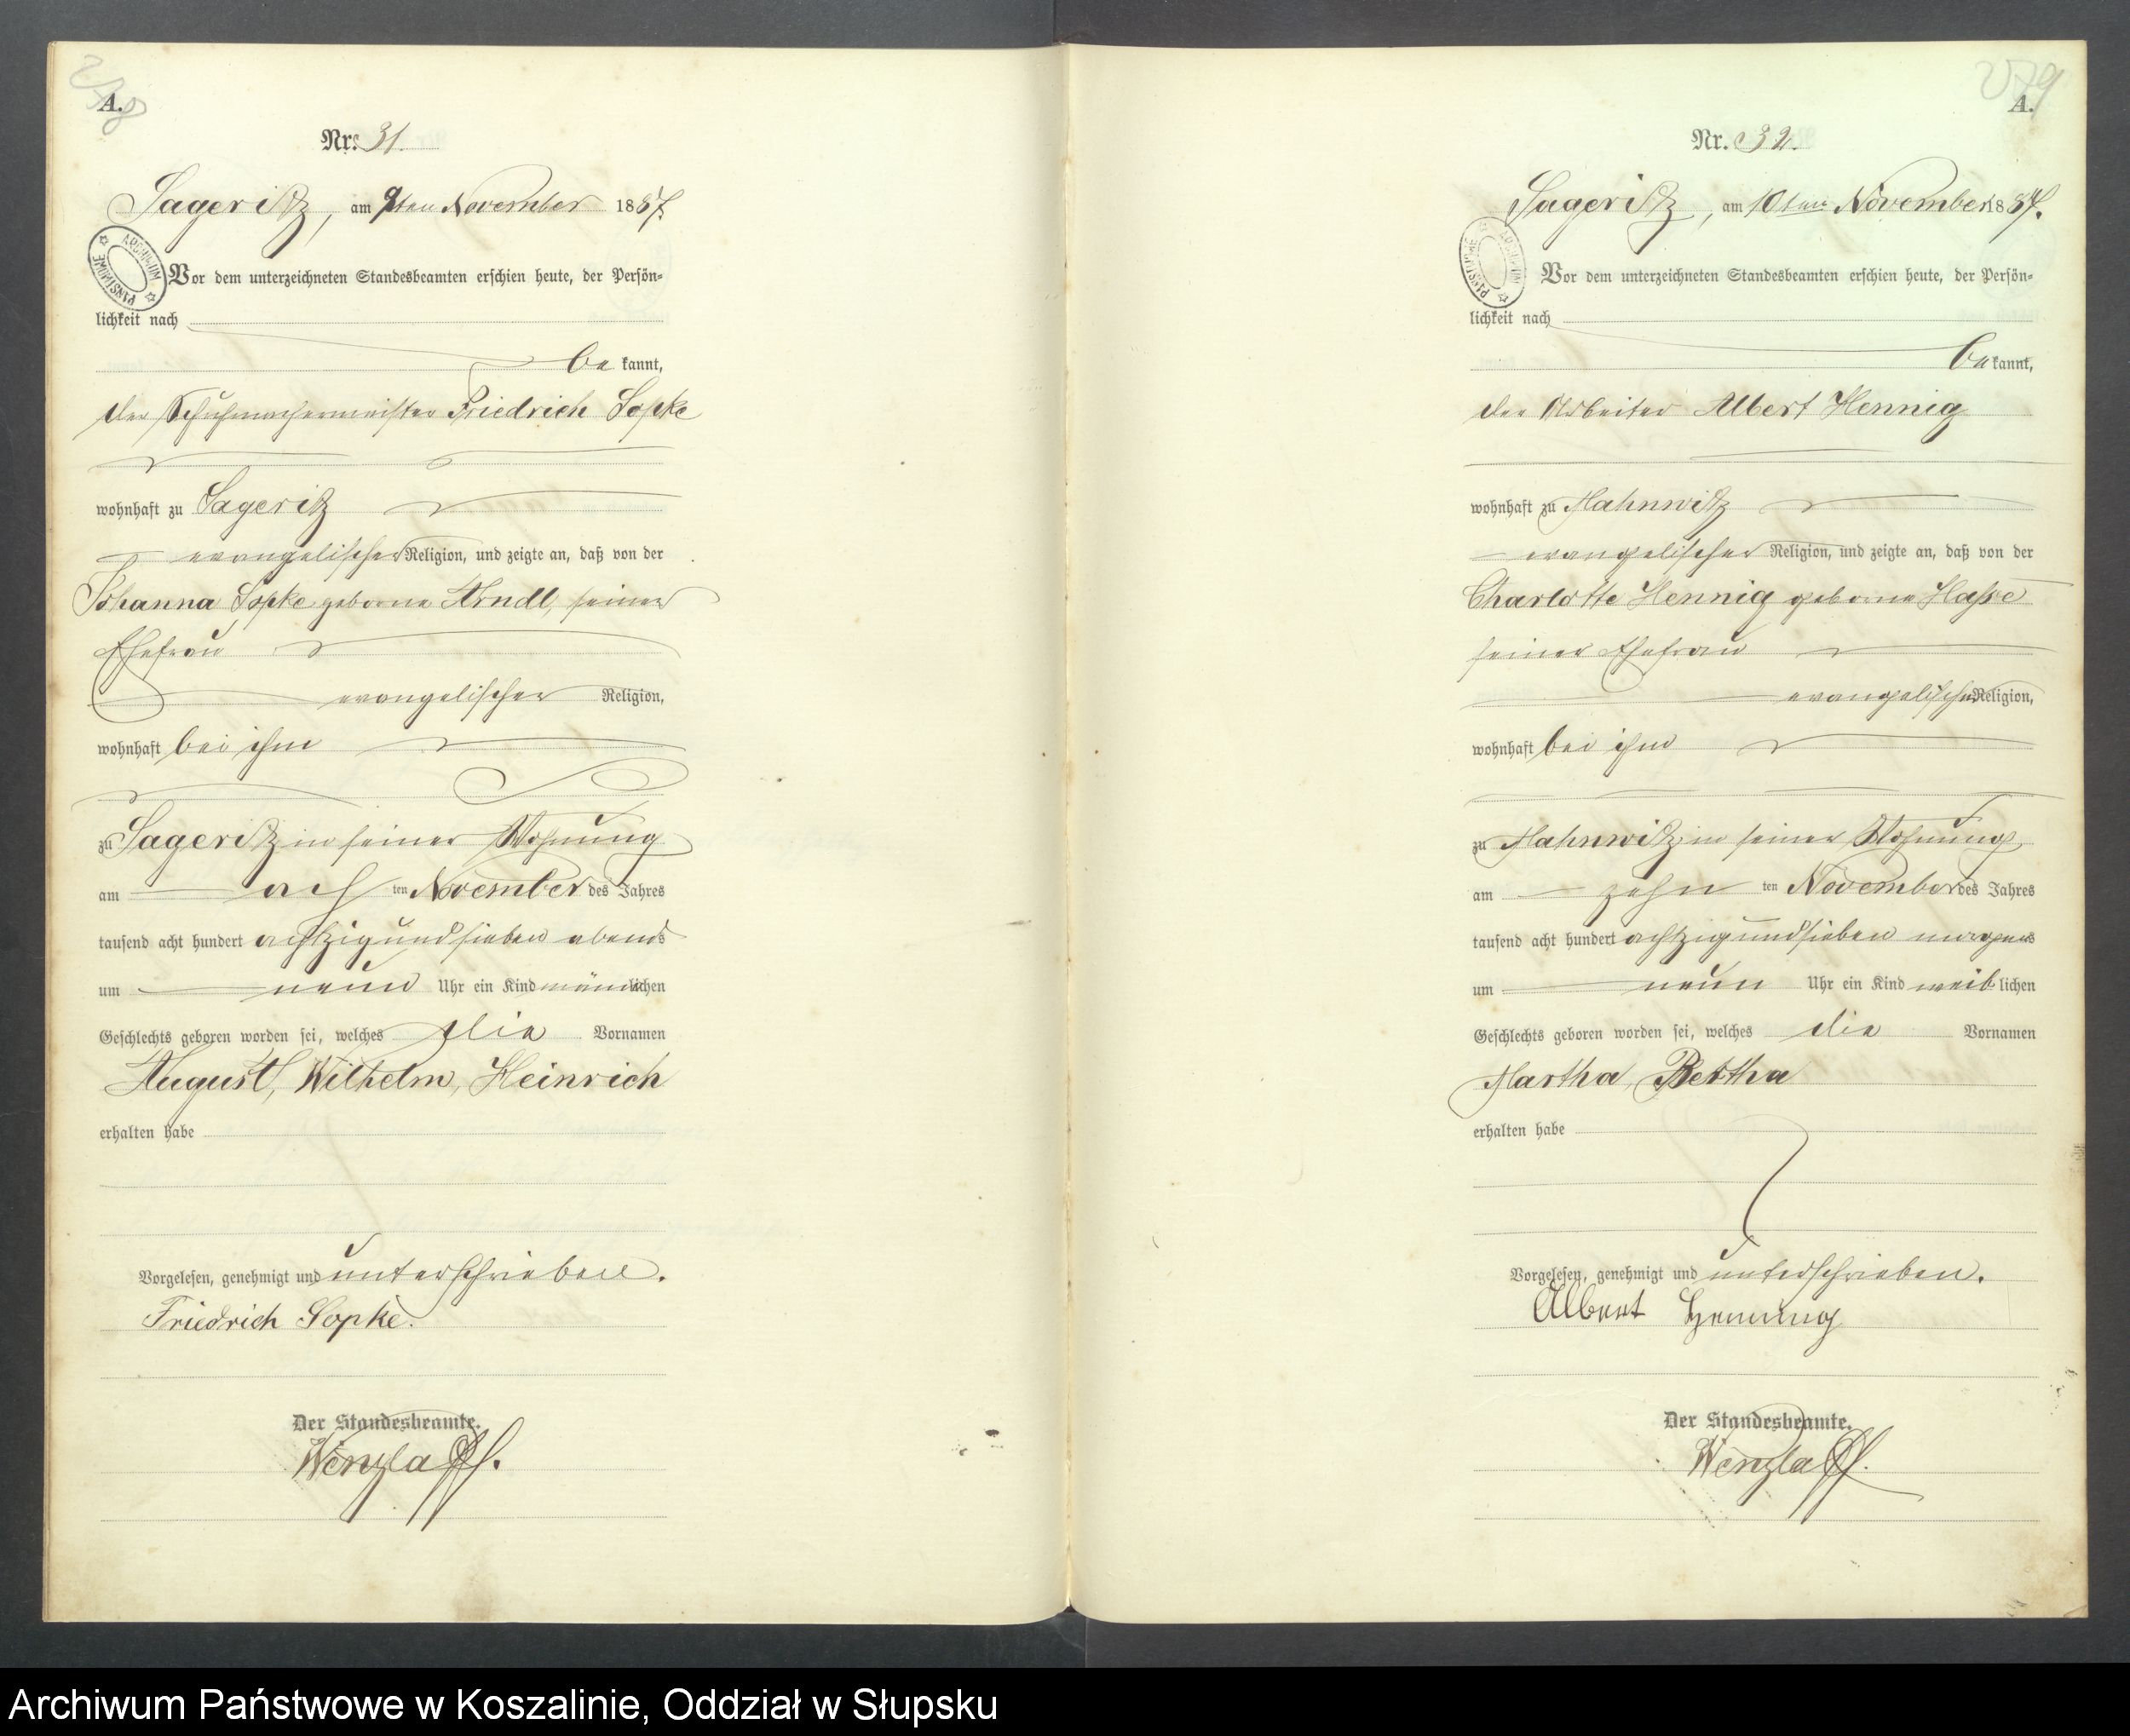 278
A.
Nr. 31.
Sageritz, am 9ten November 1887.
ARCHIWUM PAŃSTWOWE
Vor dem unterzeichneten Standesbeamten erschien heute, der Persön-
lichkeit nach
be kannt,
der Schuhmachermeister Friedrich Sopke
wohnhaft zu Sageritz
evangelischer Religion, und zeigte an, daß von der
Johanna Sopke geborne Arndt, seiner
Ehefrau
evangelischer Religion,
wohnhaft bei ihm
zu Sageritz in seiner Wohnung
am ach ten November des Jahres
tausend acht hundert achtzig und sieben abends
um neun Uhr ein Kind männlichen
Geschlechts geboren worden sei, welches die Vornamen
August, Wilhelm, Heinrich
erhalten habe
Vorgelesen, genehmigt und unterschrieben.
Friedrich Sopke.
Der Standesbeamte.
Wenzlaff.
279
A.
Nr. 32.
Sageritz, am 10ten November 1887.
ARCHIWUM PAŃSTWOWE
Vor dem unterzeichneten Standesbeamten erschien heute, der Persön-
lichkeit nach
be kannt,
der Arbeiter Albert Hennig
wohnhaft zu Mahnwitz
evangelischer Religion, und zeigte an, daß von der
Charlotte Hennig geborne Hasse
seiner Ehefrau
evangelischer Religion,
wohnhaft bei ihm
zu Mahnwitz in seiner Wohnung
am zehn ten November des Jahres
tausend acht hundert achtzig und sieben morgens
um neun Uhr ein Kind weib lichen
Geschlechts geboren worden sei, welches die Vornamen
Martha, Bertha
erhalten habe
Vorgelesen, genehmigt und unterschrieben.
Albert Hennig
Der Standesbeamte.
Wenzlaff.
Archiwum Państwowe w Koszalinie, Oddział w Słupsku